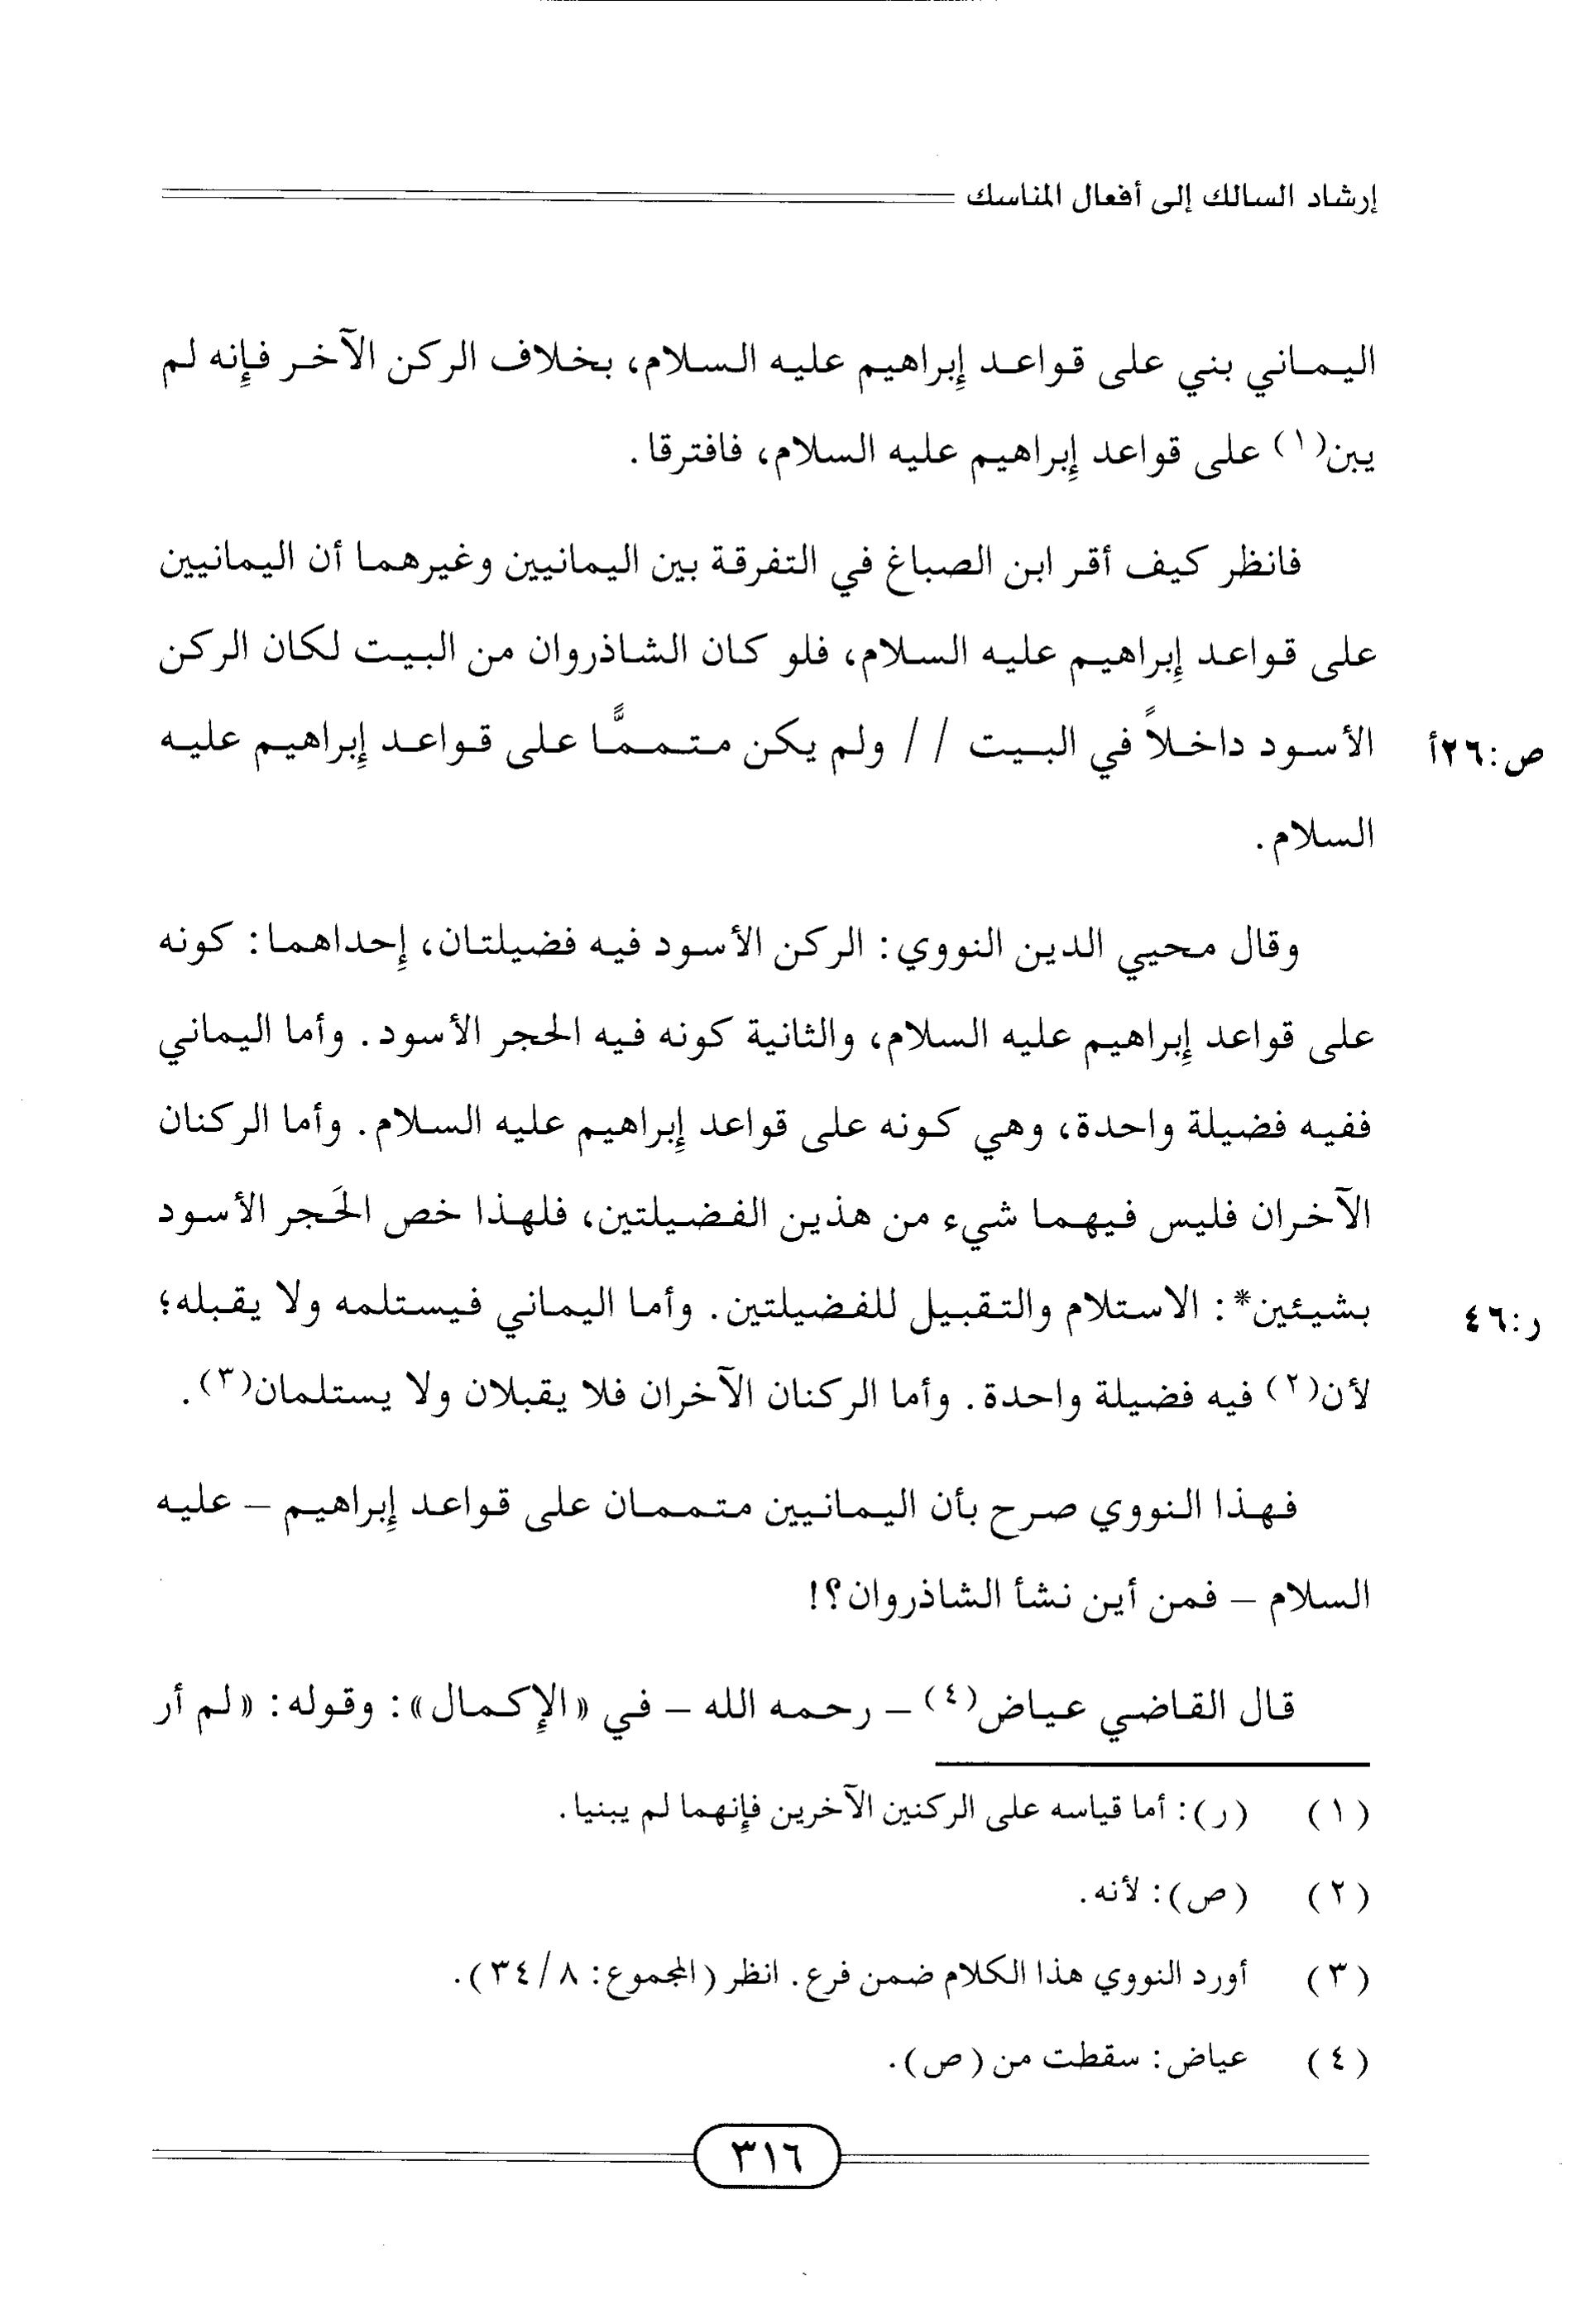 إرشاد السالك إلى أفعال المناسك
اليماني بني على قواعد إبراهيم عليه السلام، بخلاف الركن الآخر فإنه لم
يبن(١) على قواعد إبراهيم عليه السلام، فافترقا.
فانظر كيف أقر ابن الصباغ في التفرقة بين اليمانيين وغيرهما أن اليمانيين
على قواعد إبراهيم عليه السلام، فلو كان الشاذروان من البيت لكان الركن
الأسود داخلاً في البيت // ولم يكن متممًّا على قواعد إبراهيم عليه
ص:٢٦أ
السلام.
وقال محيي الدين النووي: الركن الأسود فيه فضيلتان، إحداهما: كونه
على قواعد إبراهيم عليه السلام، والثانية كونه فيه الحجر الأسود. وأما اليماني
ففيه فضيلة واحدة، وهي كونه على قواعد إبراهيم عليه السلام. وأما الركنان
الآخران فليس فيهما شيء من هذين الفضيلتين، فلهذا خص الحَجر الأسود
بشيئين*: الاستلام والتقبيل للفضيلتين. وأما اليماني فيستلمه ولا يقبله؛
ر:٤٦
لأن(٢) فيه فضيلة واحدة. وأما الركنان الآخران فلا يقبلان ولا يستلمان(٣).
فهذا النووي صرح بأن اليمانيين متممان على قواعد إبراهيم – عليه
السلام – فمن أين نشأ الشاذروان؟!
قال القاضي عياض(٤) – رحمه الله – في «الإكمال»: وقوله: «لم أر
(١) (ر): أما قياسه على الركنين الآخرين فإنهما لم يبنيا.
(٢) (ص): لأنه.
(٣) أورد النووي هذا الكلام ضمن فرع. انظر (المجموع: ٨/٣٤).
(٤) عياض: سقطت من (ص).
٣١٦